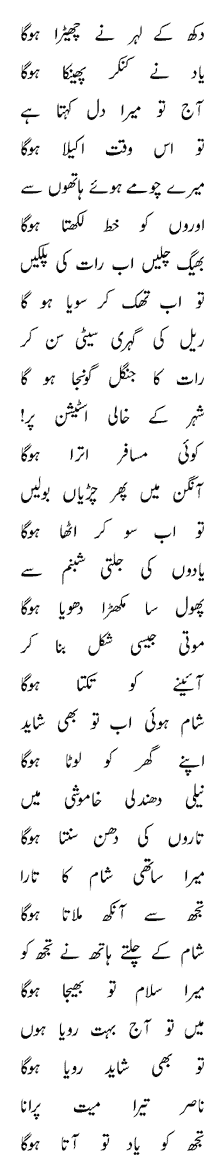 دکھ کے لہر نے چھیڑا ہوگا
یاد نے کنکر پھینکا ہوگا
آج تو میرا دل کہتا ہے
تو اس وقت اکیلا ہوگا
میرے چومے ہوئے ہاتھوں سے
اوروں کو خط لکھتا ہوگا
بھیگ چلیں اب رات کی پلکیں
تو اب تھک کر سویا ہو گا
ریل کی گہری سیٹی سن کر
رات کا جنگل گونجا ہو گا
شہر کے خالی اسٹیشن پر!
کوئی مسافر اترا ہوگا
آنگن میں پھر چڑیاں بولیں
تو اب سو کر اٹھا ہوگا
یادوں کی جلتی شبنم سے
پھول سا مکھڑا دھویا ہوگا
موتی جیسی شکل بنا کر
آئینے کو تکتا ہوگا
شام ہوئی اب تو بھی شاید
اپنے گھر کو لوٹا ہوگا
نیلی دھندلی خاموشی میں
تاروں کی دھن سنتا ہوگا
میرا ساتھی شام کا تارا
تجھ سے آنکھ ملاتا ہوگا
شام کے چلتے ہاتھ نے تجھ کو
میرا سلام تو بھیجا ہوگا
میں تو آج بہت رویا ہوں
تو بھی شاید رویا ہوگا
ناصر تیرا میت پرانا
تجھ کو یاد تو آتا ہوگا